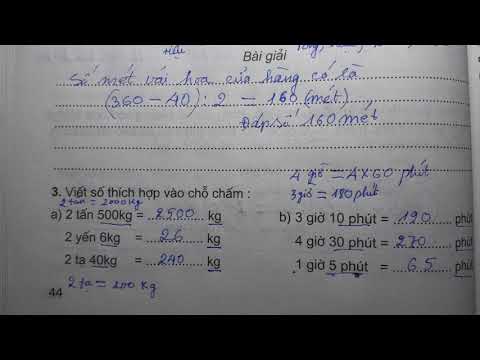 Bài giải
Số mét vải hoa cửa hàng có là
(360 – 40) : 2 = 160 (mét)
Đáp số 160 mét
4 giờ = 4 x 60 phút
3 giờ = 180 phút
3. Viết số thích hợp vào chỗ chấm :
2 tấn = 2000 kg
a) 2 tấn 500kg = 2500 kg
2 yến 6kg = 26 kg
2 tạ 40kg = 240 kg
b) 3 giờ 10 phút = 190 phút
4 giờ 30 phút = 270 phút
1 giờ 5 phút = 65 phút
2 tạ = 200 kg
44